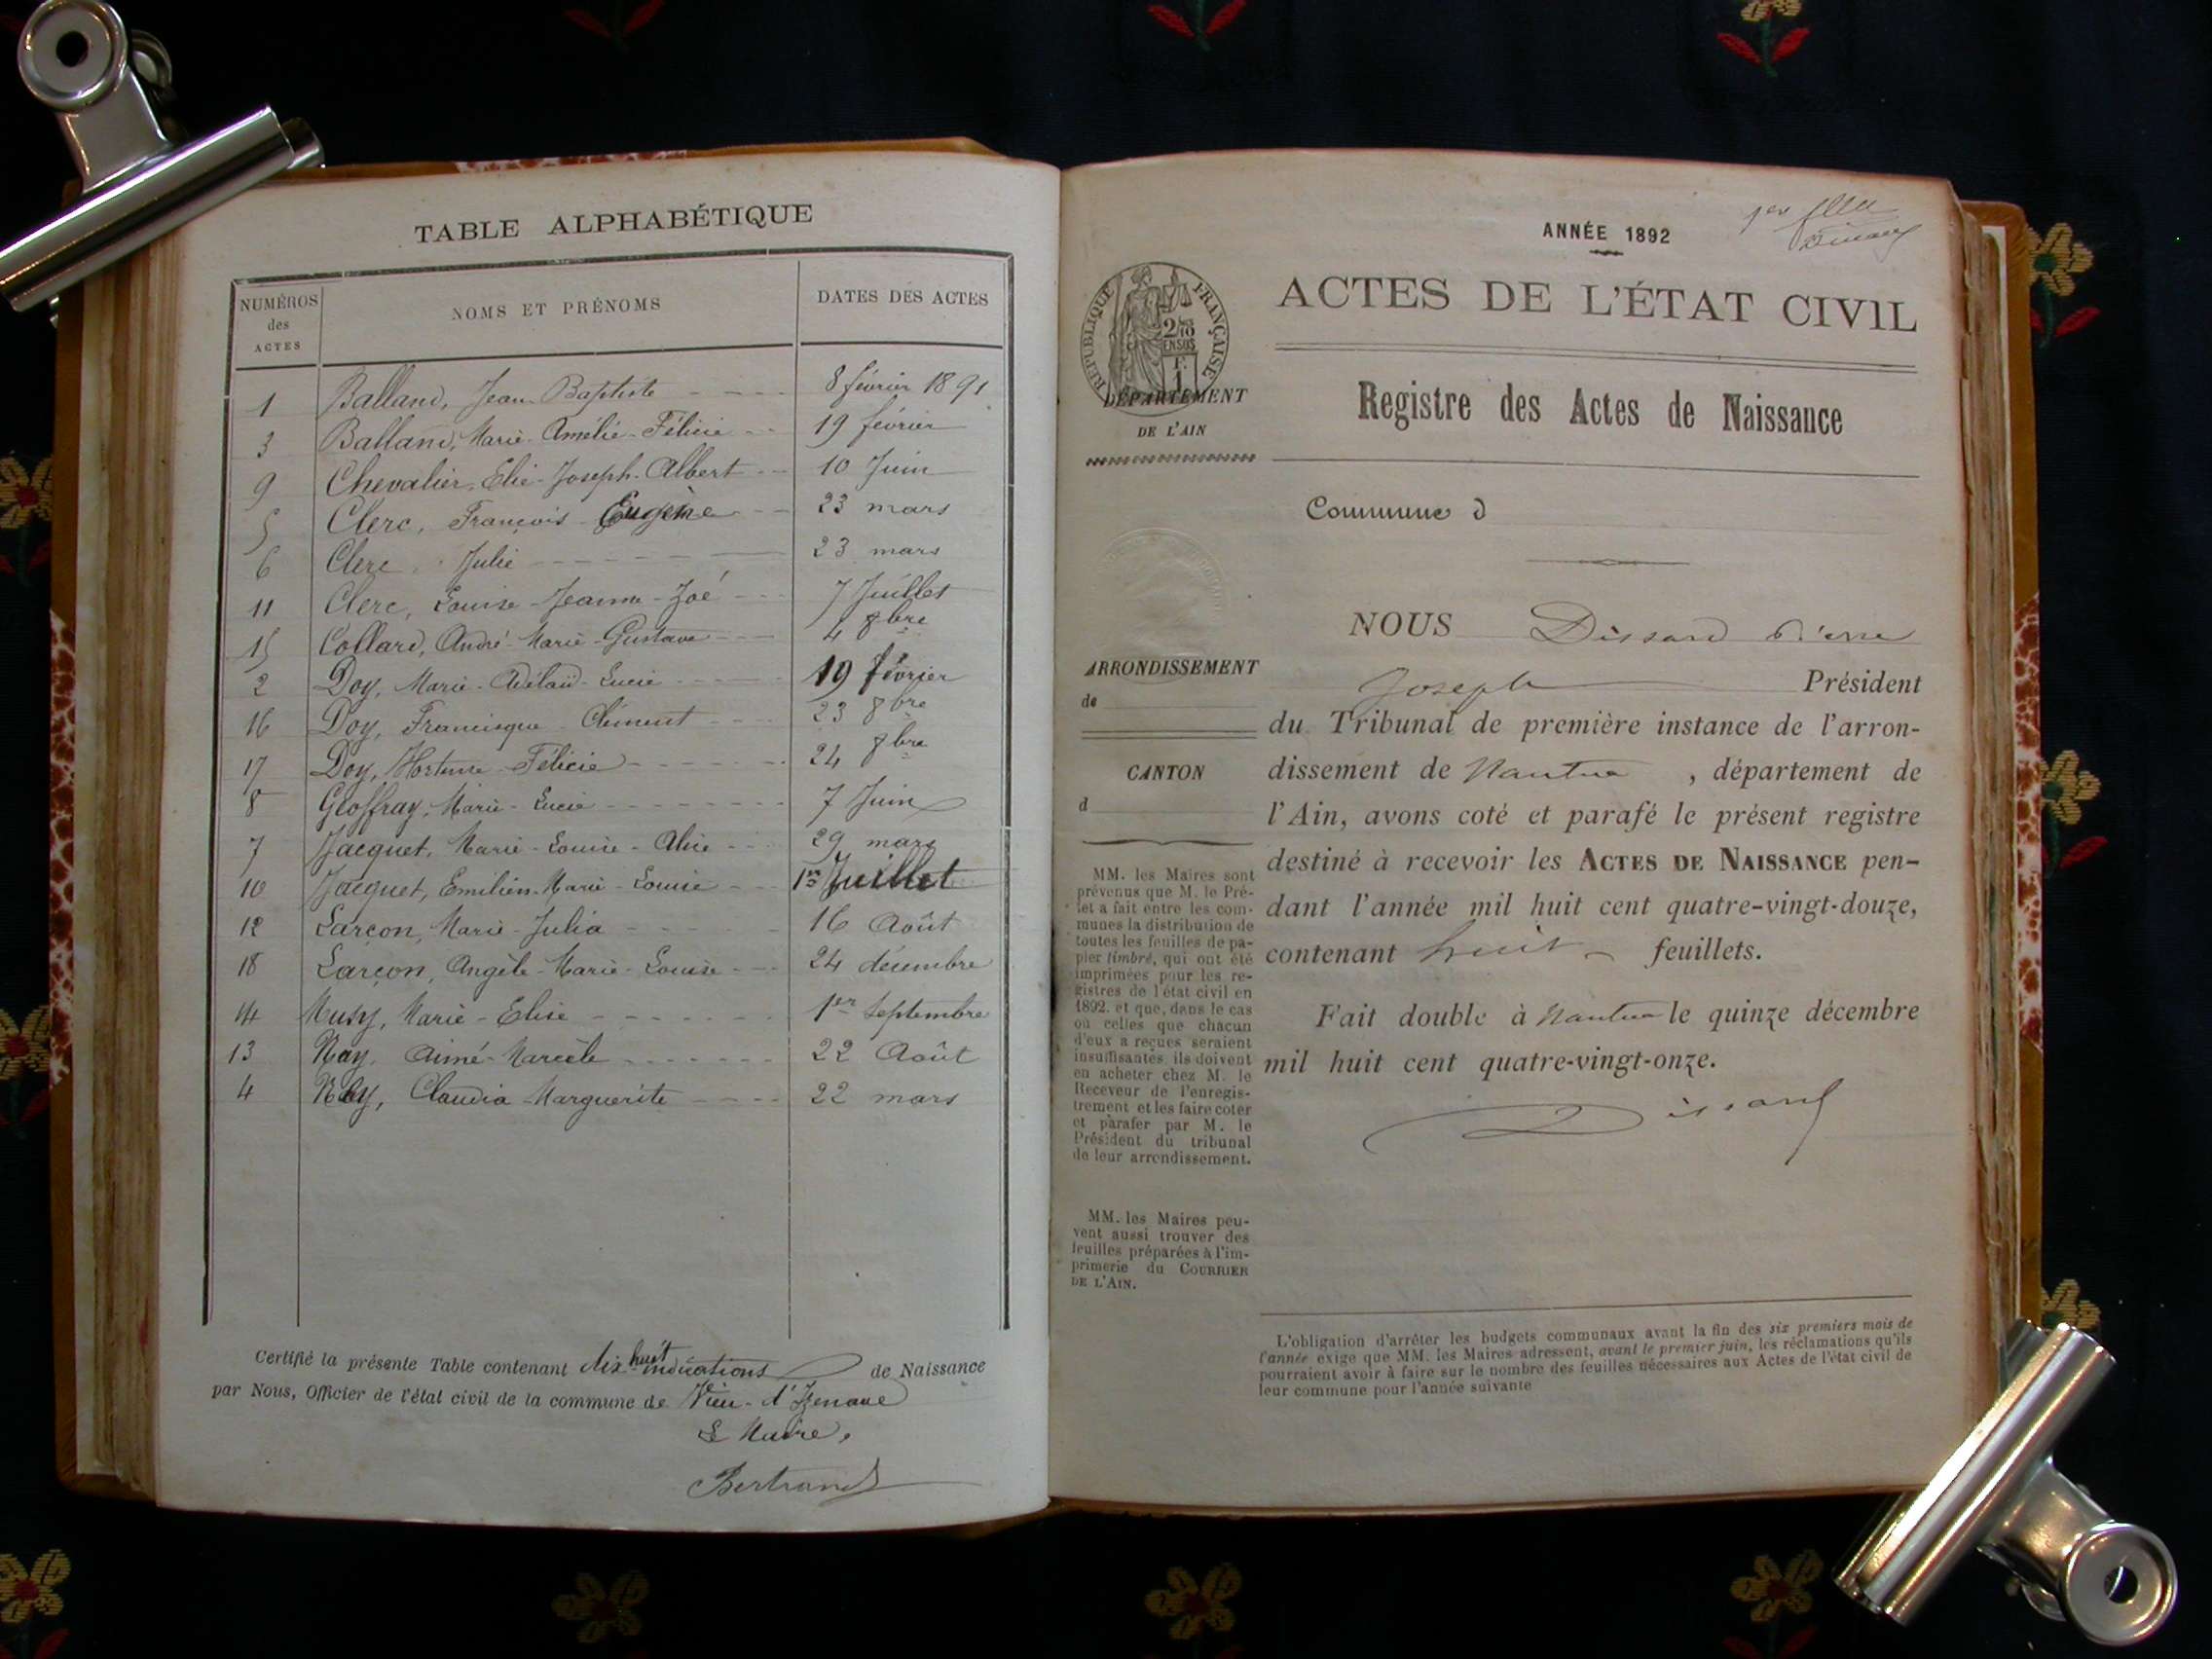 TABLE ALPHABÉTIQUE
NUMÉROS des ACTES NOMS ET PRÉNOMS DATES DES ACTES
1 Balland, Jean-Baptiste 8 février 1891
3 Balland, Marie-Amélie-Félicie 19 février
9 Chevalier, Elie-Joseph-Albert 10 Juin
5 Clerc, François Eugène 23 mars
6 Clerc, Julie 23 mars
11 Clerc, Louise-Jeanne-Zoé 7 Juillet
15 Collard, André-Marie-Gustave 4 8bre
2 Doy, Marie-Lucie 19 février
16 Doy, Francisque-Clément 23 8bre
17 Doy, Hortense-Félicie 24 8bre
8 Geoffray, Marie-Lucie 7 Juin
7 Jacquet, Marie-Louise-Alice 29 mars
10 Jacquet, Emilien-Marie-Louise 1er Juillet
12 Larçon, Marie-Julia 16 Août
18 Larçon, Angèle-Marie-Louise 24 décembre
14 Musy, Marie-Elise 1er Septembre
13 Nay, Aimé-Marcèle 22 Août
4 Claudia Marguerite 22 mars
Certifié la présente Table contenant dix-huit indications de Naissance
par Nous, Officier de l'état civil de la commune de Vieu-d'Izenave
Le Maire,
Bertrand
1er
ANNÉE 1892
RÉPUBLIQUE FRANÇAISE
ACTES DE L'ÉTAT CIVIL
DÉPARTEMENT
DE L'AIN
Registre des Actes de Naissance
Commune d
NOUS Dissard Pierre
Joseph Président
du Tribunal de première instance de l'arron-
dissement de Nantua, département de
l'Ain, avons coté et parafé le présent registre
destiné à recevoir les ACTES DE NAISSANCE pen-
dant l'année mil huit cent quatre-vingt-douze,
contenant huit feuillets.
Fait double à Nantua le quinze décembre
mil huit cent quatre-vingt-onze.
Dissard
ARRONDISSEMENT
de
CANTON
d
MM. les Maires sont
prévenus que M. le Pré-
fet a fait entre les com-
munes la distribution de
toutes les feuilles de pa-
pier timbré, qui ont été
imprimées pour les re-
gistres de l'état civil en
1892. et que, dans le cas
où celles que chacun
d'eux a reçues seraient
insuffisantes, ils doivent
en acheter chez M. le
Receveur de l'enregis-
trement et les faire coter
et parafer par M. le
Président du tribunal
de leur arrondissement.
MM. les Maires peu-
vent aussi trouver des
feuilles préparées à l'im-
primerie du COURRIER
DE L'AIN.
L'obligation d'arrêter les budgets communaux avant la fin des six premiers mois de
l'année exige que MM. les Maires adressent, avant le premier juin, les réclamations qu'ils
pourraient avoir à faire sur le nombre des feuilles nécessaires aux Actes de l'état civil de
leur commune pour l'année suivante